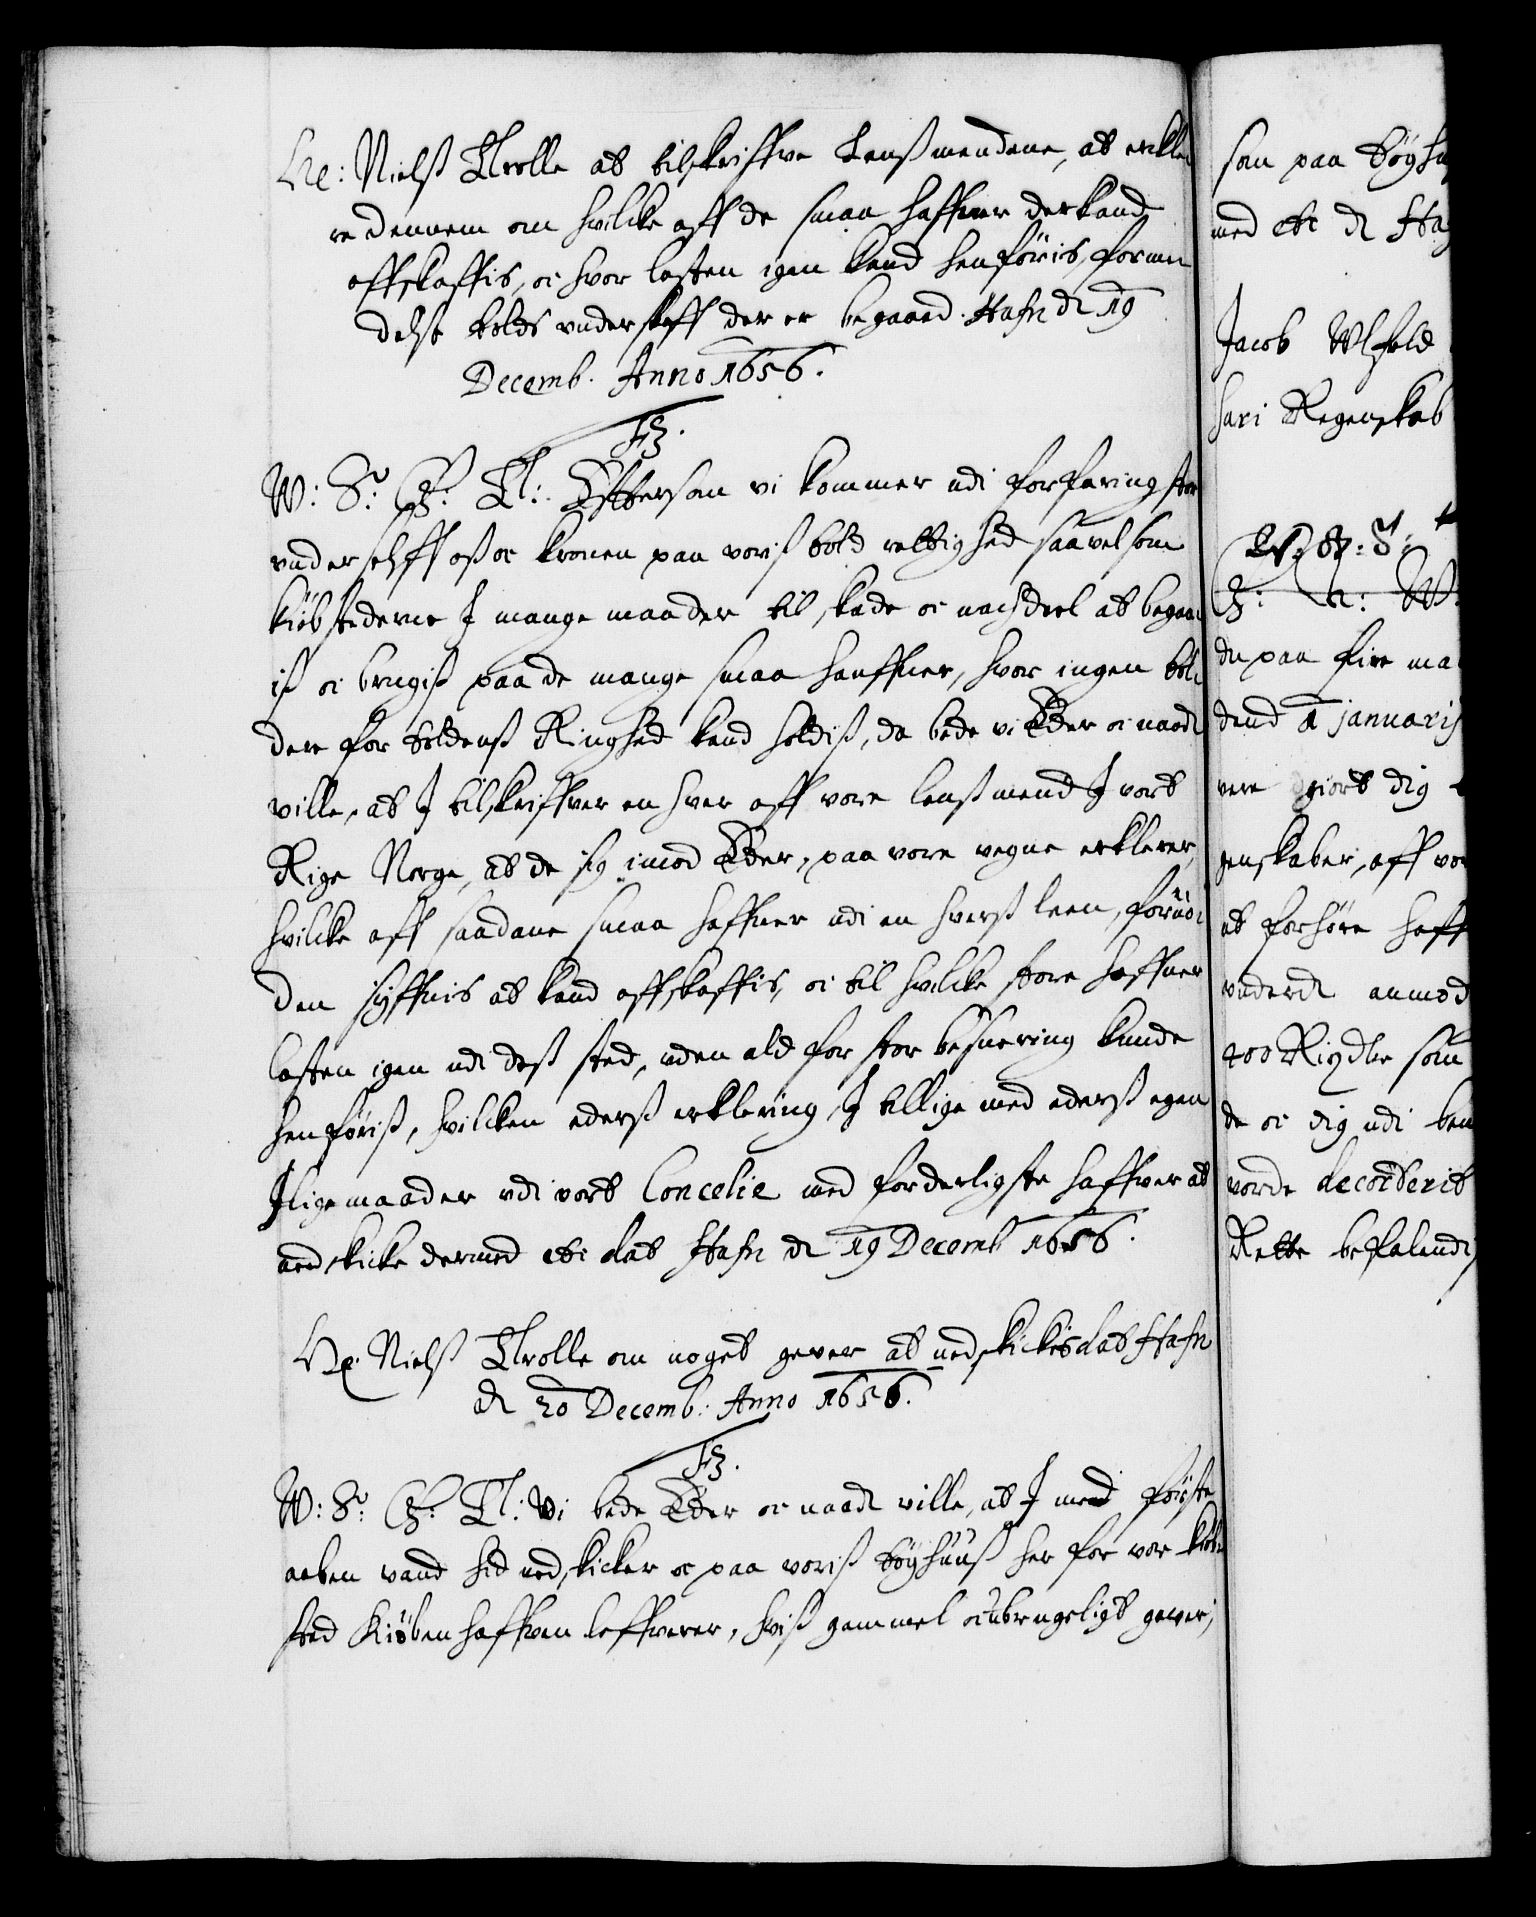 He: Nielß Trolle at tilskriffve Lenßmendene, at erkle
re dennem om hvilcke aff de smaa haffner der kand
affskaffis, oc hvor lasten igen kand henføris, forme
delst tolds underslæff der er begaaed. Hafn d 19
Decemb. Anno 1656.
F3.
W: S: G: T: Effttersom vi kommer udi forfaring stor
underschlff oß oc kronen paa voriß told rettighed saavelsom
kiøbstederne I mange maader til skade oc nachdeel at begaa
iß oc brugiß paa de mange smaa hauffner, hvor ingen tol
dere for toldenß Ringhed kand holdiß, da bede vi Eder oc naad
ville, at I tilskriffver en hver aff vore lenßmend I vort
Rige Norge, at de sig imod Eder, paa vore vegne erklerer,
hvilcke aff saadane smaa haffner udi en hverß leen, foruden
den siunis at kand affskaffis, oc til hvilcke store haffner
lasten igen udi deß sted, uden ald for stor besuering kunde
henføriß, hvilcken ederß erklering I tillige med ederß egen
I lige maader udi vort Cancelie med forderligste haffver at
nedskicke dermed etc dat Hafn d 19 Decemb 1656.
He. Nielß Trolle om noget gever at nedskickis dat Hafn
d 20 Decemb: Anno 1656.
F3.
W: S: G: T: Vi bede Eder oc naad ville, at I med første
aaben vand hid nedskicker oc paa voriß tøyhuuß her for vor kiøb
sted Kiøbenhaffven leffverer, hviß gammel oc ubrugeligt gever,
som paa tøyhu
med etc d Haf
Jacob Ulfeld
hari Regenskab
du paa fire ma
dend 1 januarij
vere giort dig
genskaber, aff vor
at forhøre haff
underd anmod
400 Rixdlr som
de oc dig udi ben
vorde decorterit
Rette befalendi